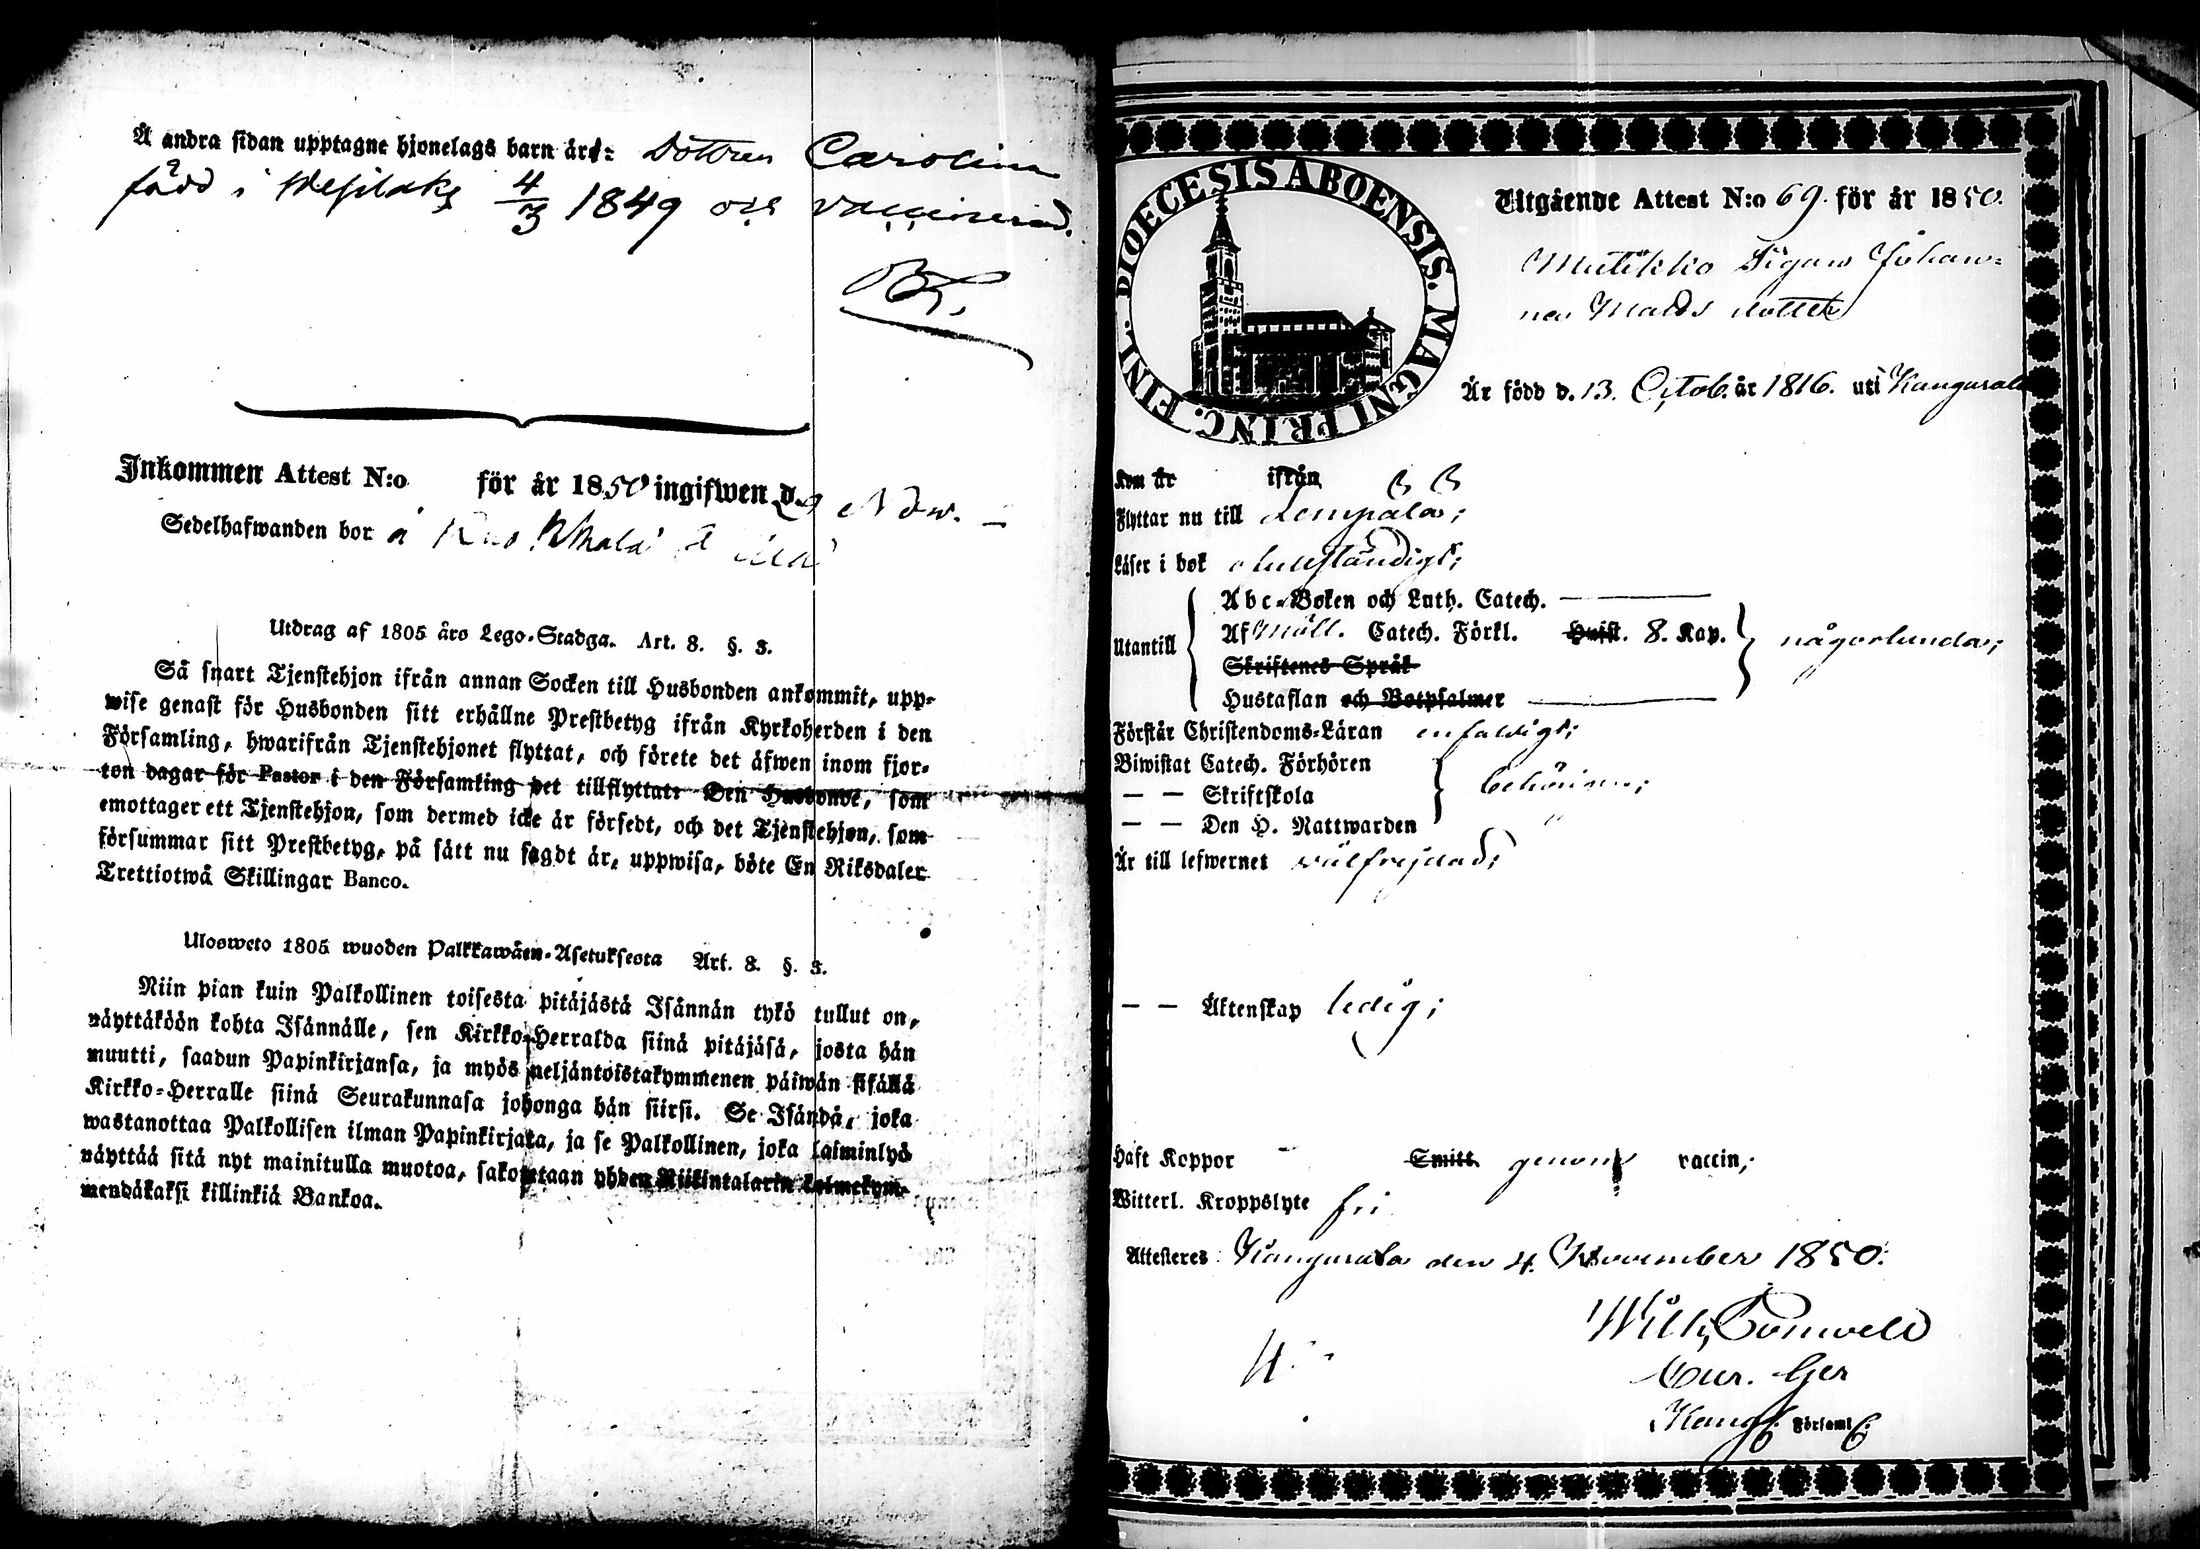 Å andra sidan upptagne hjonelags barn är: Dottren Carolina
född i Wesilaks 4/3 1849 och vaccinerad.
Inkommen Attest N:o för år 1850 ingifwen d. 9 Nov. —
Sedelhafwanden bor å
Utdrag af 1805 års Lego-Stadga. Art. 8. §. 3.
Så snart Tjenstehjon ifrån annan Socken till Husbonden ankommit, upp-
wise genast för Husbonden sitt erhållne Prestbetyg ifrån Kyrkoherden i den
Församling, hwarifrån Tjenstehjonet flyttat, och förete det äfwen inom fjor-
ton dagar för Pastor i den Församling det tillflyttat: Den Husbonde, som
emottager ett Tjenstehjon, som dermed icke är försedt, och det Tjenstehjon, som
försummar sitt Prestbetyg, på sätt nu sagdt är, uppwisa, böte En Riksdaler
Trettiotwå Skillingar Banco.
Ulosweto 1805 wuoden Palkkawäen-Asetuksesta Art. 8. §. 3.
Niin pian kuin Palkollinen toisesta pitäjästä Isännän tykö tullut on,
näyttäköön kohta Isännälle, sen Kirkko-Herralda siinä pitäjäsä, josta hän
muutti, saadun Papinkirjansa, ja myös neljäntoistakymmenen päiwän sisällä
Kirkko-Herralle siinä Seurakunnasa johonga hän siirsi. Se Isändä, joka
wastanottaa Palkollisen ilman Papinkirjata, ja se Palkollinen, joka laiminlyö
näyttää sitä nyt mainitulla muotoa, sakotetaan yhden Riikintalarin kolmekym-
mendäkaksi killinkiä Bankoa.
DIOECESIS ABOENSIS. MAGNI PRINC. FINL.
Utgående Attest N:o 69. för år 1850.
Mutikko Pigan Johan-
na Matts dotter
Är född d. 13. Octob. år 1816. uti Kangasala
Kom år ifrån
Flyttar nu till Lempälä;
Läser i bok ofullständigt;
Abc-Boken och Luth. Catech.
Utantill Af Möll. Catech. Förkl. Husst. 8. Kap. någorlunda;
Skriftenes Språk
Hustaflan och Botpsalmer
Förstår Christendoms-Läran enfaldigt;
Biwistat Catech. Förhören
— — Skriftskola behörigen;
— — Den H. Nattwarden
Är till lefwernet wälfrejdad;
— — Äktenskap ledig;
Haft Koppor - Smitt. genom vaccin;
Witterl. Kroppslyte fri
Attesteras Kangasala den 4. November 1850.
Cur. Ger
Kang. Församl.